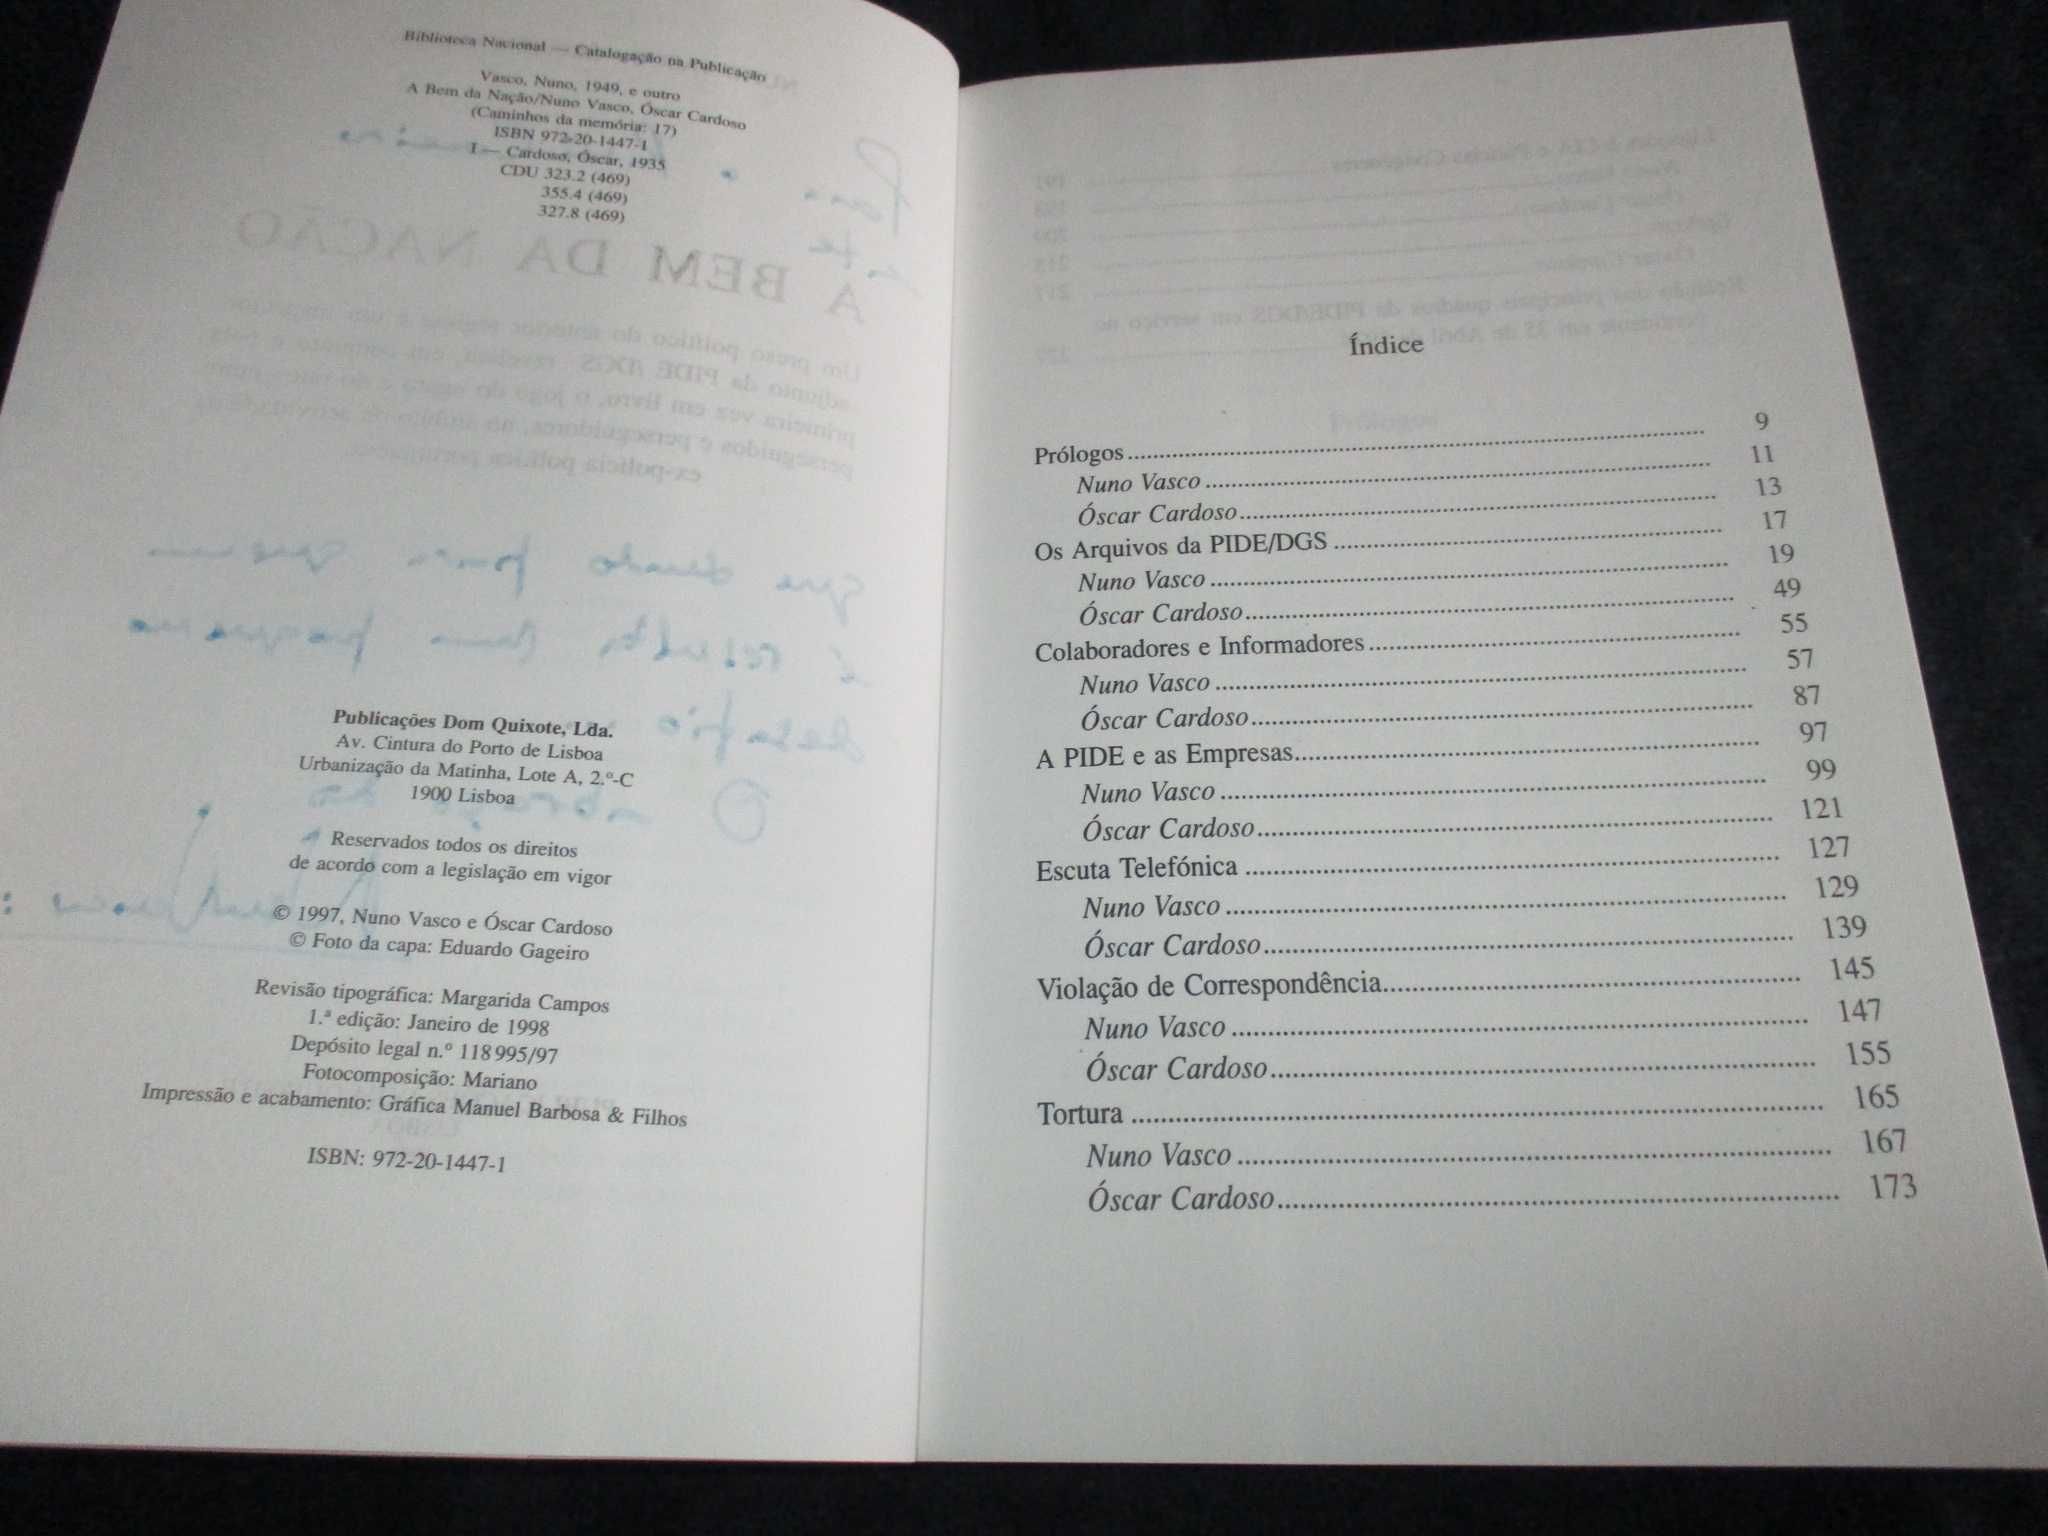 Biblioteca Nacional — Catalogação na Publicação
Vasco, Nuno, 1949, e outro
A Bem da Nação/Nuno Vasco, Óscar Cardoso
(Caminhos da memória: 17)
ISBN 972-20-1447-1
I — Cardoso, Óscar, 1935
CDU 323.2 (469)
355.4 (469)
327.8 (469)
A BEM DA NAÇÃO
Publicações Dom Quixote, Lda.
Av. Cintura do Porto de Lisboa
Urbanização da Matinha, Lote A, 2.º-C
1900 Lisboa
Reservados todos os direitos
de acordo com a legislação em vigor
© 1997, Nuno Vasco e Óscar Cardoso
© Foto da capa: Eduardo Gageiro
Revisão tipográfica: Margarida Campos
1.ª edição: Janeiro de 1998
Depósito legal n.º 118 995/97
Fotocomposição: Mariano
Impressão e acabamento: Gráfica Manuel Barbosa & Filhos
ISBN: 972-20-1447-1
Índice
Prólogos ........ 9
Nuno Vasco ........ 11
Óscar Cardoso ........ 13
Os Arquivos da PIDE/DGS ........ 17
Nuno Vasco ........ 19
Óscar Cardoso ........ 49
Colaboradores e Informadores ........ 55
Nuno Vasco ........ 57
Óscar Cardoso ........ 87
A PIDE e as Empresas ........ 97
Nuno Vasco ........ 99
Óscar Cardoso ........ 121
Escuta Telefónica ........ 127
Nuno Vasco ........ 129
Óscar Cardoso ........ 139
Violação de Correspondência ........ 145
Nuno Vasco ........ 147
Óscar Cardoso ........ 155
Tortura ........ 165
Nuno Vasco ........ 167
Óscar Cardoso ........ 173